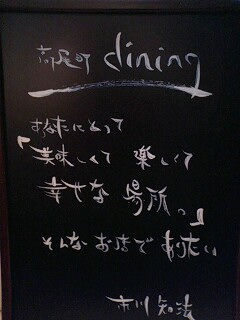 高尾町 dining
あなたにとって
「美味しくて 楽しくて
幸せな 場所っ」
そんな お店で ありたい
市川 知法